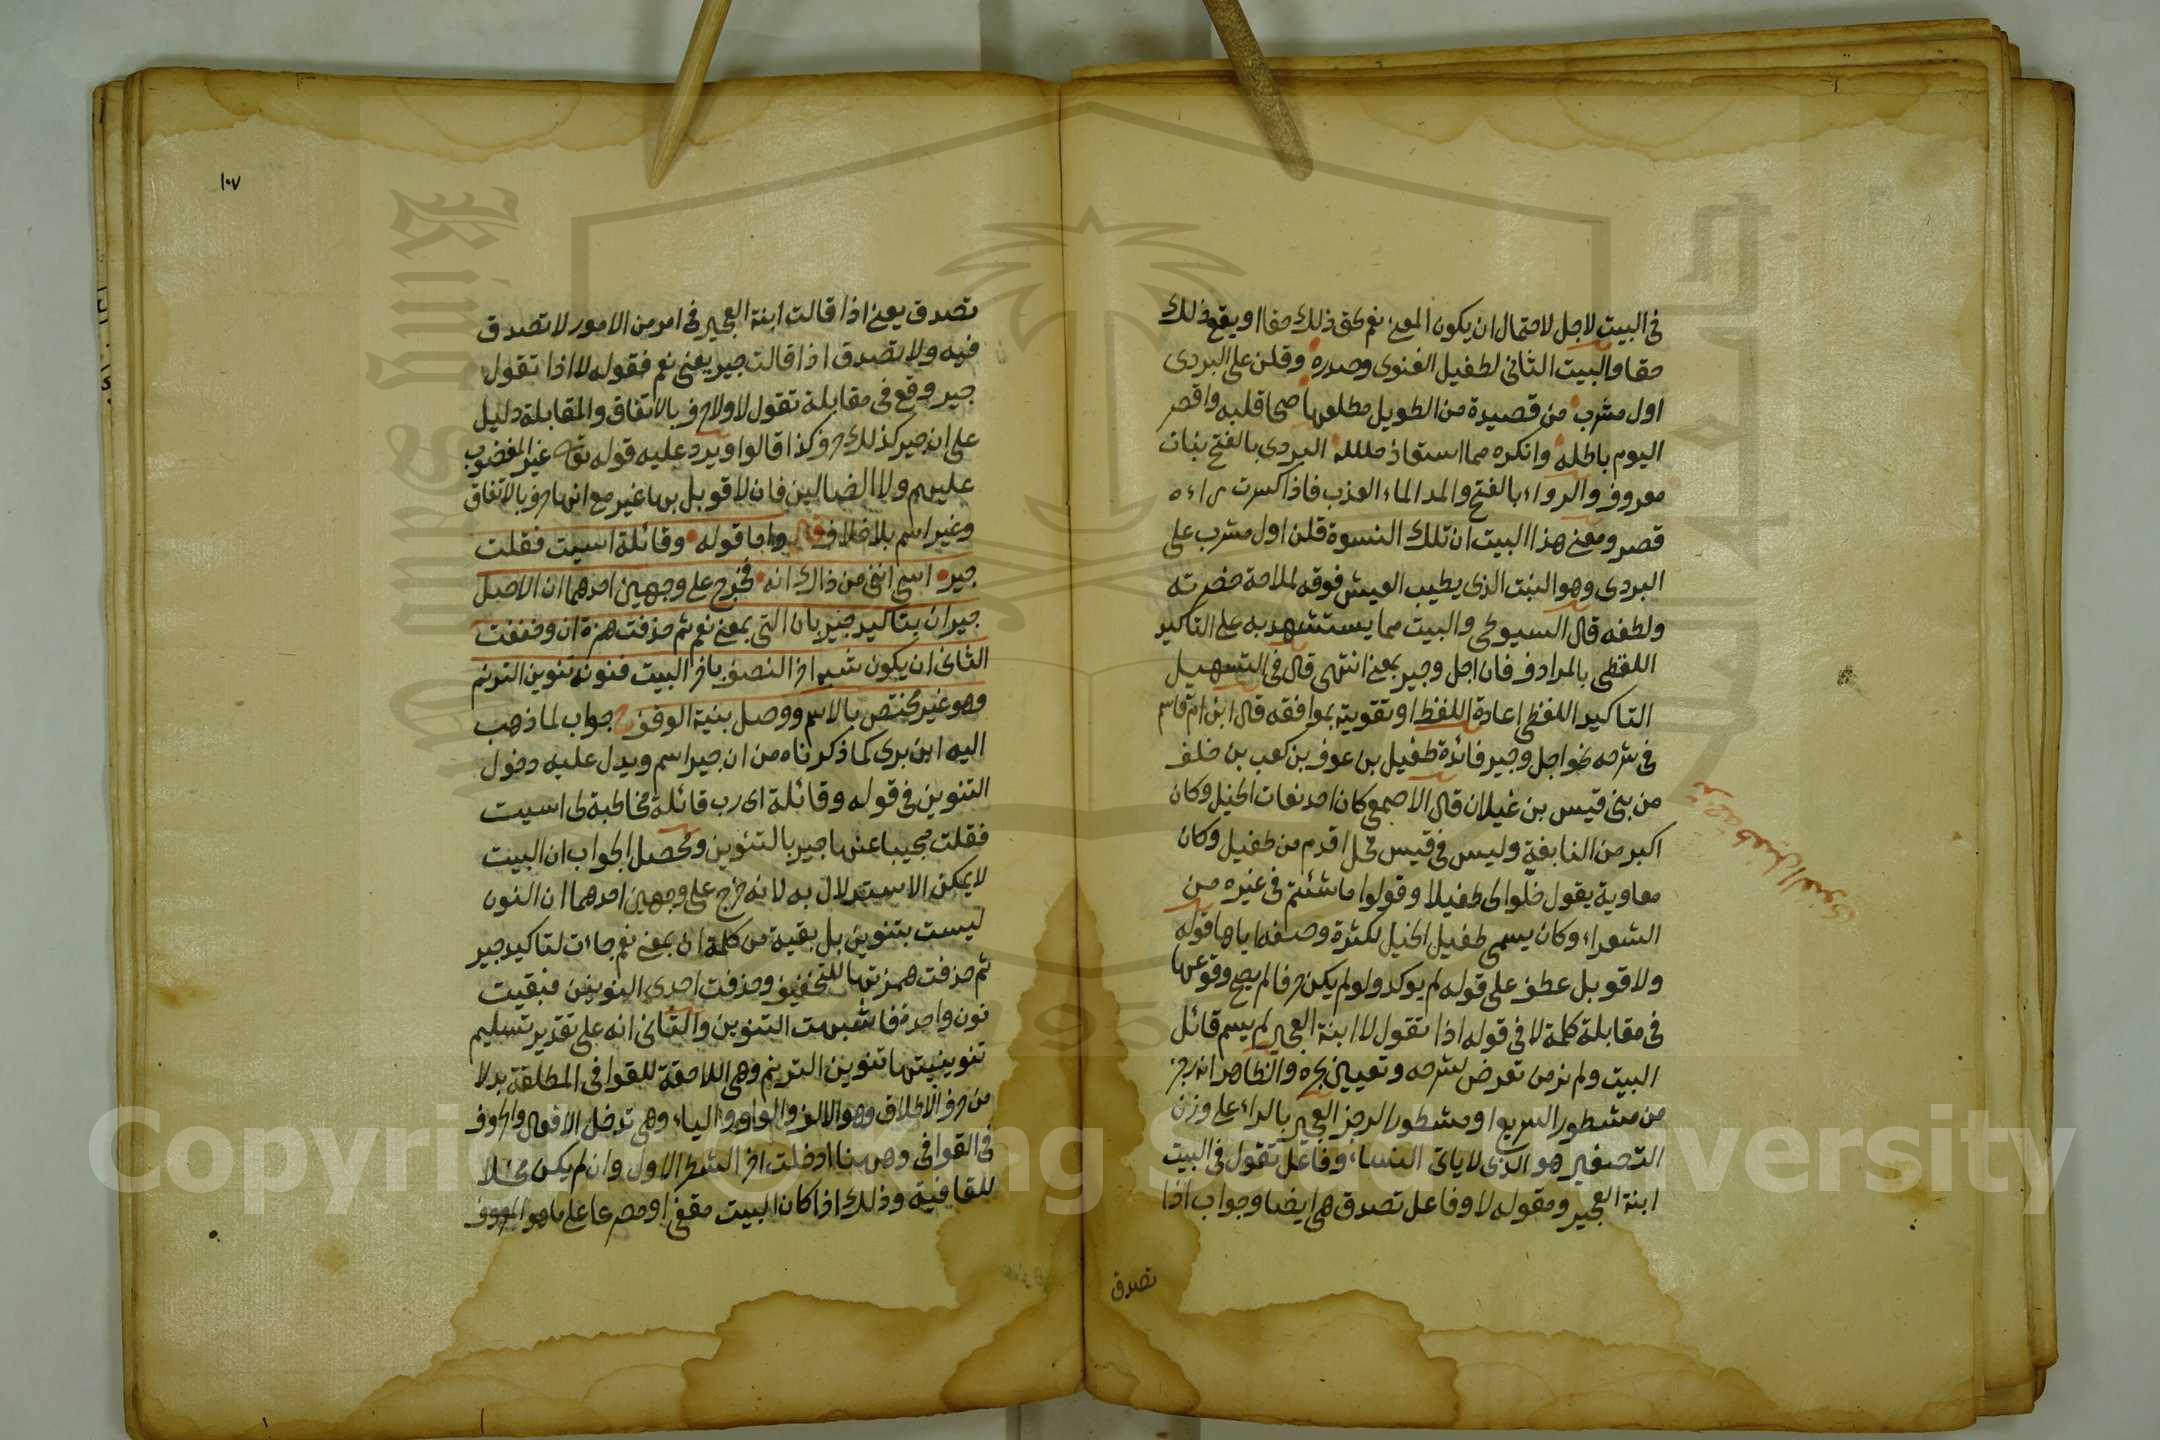 في البيت لاجل لاحتمال ان يكون المعنى نعم تحقق ذلك حقا او يقع ذلك
حقا والبيت الثاني لطفيل الغنوي وصدره وقلن على البردي
اول مشرب من قصيدة من الطويل مطلعها صحا قلبه واقصر
اليوم باطله وانكره مما استفاد البردي بالفتح نبات
معروف والرواء بالفتح والمد الماء العذب فاذا كسرت راءه
قصر ومعنى هذا البيت ان تلك النسوة قلن اول مشرب على
البردي وهو النبت الذي يطيب العيش فوقه لملاحة خضرته
ولطفه قال السيوطي والبيت مما يستشهد به على التاكيد
اللفظي بالمرادف فان اجل وجير بمعنى انتهى قال في التسهيل
التاكيد اللفظي اعادة اللفظ او تقويته بموافقه قال ابن ام قاسم
في شرحه نحو اجل وجير فائدة طفيل بن عوف بن كعب بن خلف
من بني قيس بن غيلان قال الاصمعي كان احد نعات الخيل وكان
اكبر من النابغة وليس في قيس فحل اقدم من طفيل وكان
معاوية يقول خلوا لي طفيلا وقولوا ما شئتم في غيره من
الشعراء وكان يسمى طفيل الخيل لكثرة وصفه اياها قوله
ولا قوبل عطف على قوله لم يوكد ولو لم يكن حرفا لم يصح وقوعها
في مقابلة كلمة لا في قوله اذا تقول لا ابنة العجير لم يسم قائل
البيت ولم نر من تعرض لشرحه وتعيين بحره والظاهر انه
من مشطور السريع او مشطور الرجز العجير بالراء على وزن
التصغير هو الذي لا ياتي النساء وفاعل تقول في البيت
ابنة العجير ومقوله لا وفاعل تصدق هي ايضا وجواب اذا
تصدق
ترجمة طفيل الغنوي
١٠٧
تصدق يعني اذا قالت ابنة العجير في امر من الامور لا تصدق
فيه ولا تصدق اذا قالت جير يعني نعم فقوله لا اذا تقول
جير وقع في مقابلة تقول لا ولا حرف بالاتفاق والمقابلة دليل
على ان جير كذلك حرف كذا قالوا ويرد عليه قوله تعالى غير المغضوب
عليهم ولا الضالين فان لا قوبل بها غير مع انها حرف بالاتفاق
وغير اسم بلا خلاف قال واما قوله وقائلة اسيت فقلت
جير اسي انني من ذاك انه فخرج على وجهين احدهما ان الاصل
جير ان بتاكيد جير بان التي بمعنى نعم ثم حذفت همزة ان وخففت
الثاني ان يكون شبه اخر النصف باخر البيت فنونه تنوين الترنم
وهو غير مختص بالاسم ووصل بنية الوقف جواب لما ذهب
اليه ابن بري كما ذكرناه من ان جير اسم ويدل عليه دخول
التنوين في قوله وقائلة اي رب قائلة مخاطبة لي اسيت
فقلت مجيبا عنها جير بالتنوين ومحصل الجواب ان البيت
لا يمكن الاستدلال به لانه خرج على وجهين احدهما ان النون
ليست بتنوين بل بقية من كلمة ان بمعنى نعم جاءت لتاكيد جير
ثم حذفت همزتها للتخفيف وحذفت احدى النونين فبقيت
نون واحدة فاشبهت التنوين والثاني انه على تقدير تسليم
تنوينيتها تنوين الترنم وهي اللاحقة للقوافي المطلقة بدلا
من حرف الاطلاق وهو الالف والواو والياء وهي تدخل الافعال والحروف
في القوافي وههنا ادخلت اخر الشطر الاول وان لم يكن محلا
للقافية وذلك اذا كان البيت مقفى او مصرعا على ما هو المعروف